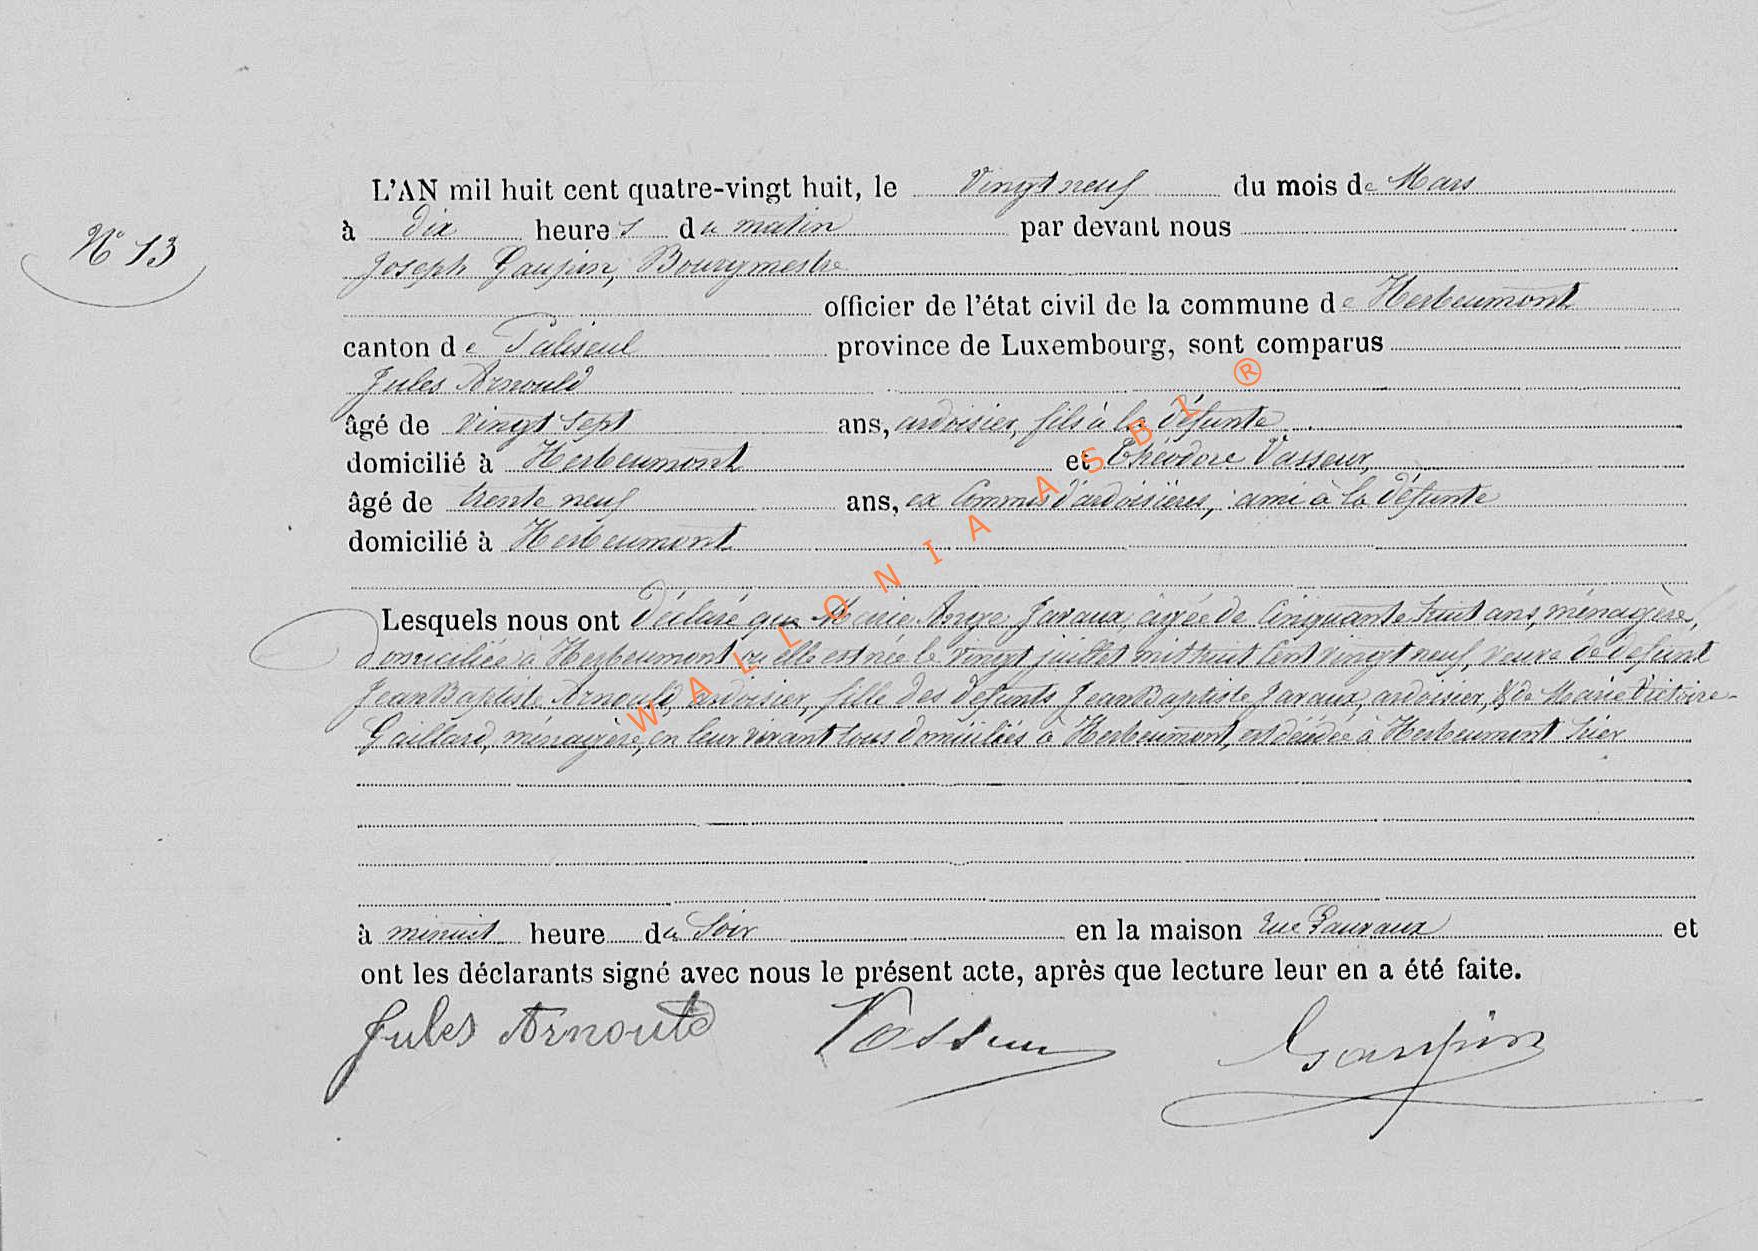 L'AN mil huit cent quatre-vingt huit, le Vingt neuf du mois de Mars
N° 13
à dix heures du matin par devant nous
Joseph Gaupin, Bourgmestre
officier de l'état civil de la commune de Herbeumont
canton de Paliseul province de Luxembourg, sont comparus
Jules Arnould
âgé de vingt sept ans, ardoisier, fils à la défunte
domicilié à Herbeumont et Théodore Vasseur,
âgé de trente neuf ans, ex Commis d'ardoisières, ami à la défunte
domicilié à Herbeumont
Lesquels nous ont Déclaré que Marie Ange Javaux, âgée de Cinquante huit ans, ménagère,
domiciliée à Herbeumont où elle est née le vingt juillet mil huit Cent vingt neuf, veuve de défunt
Jean Baptiste Arnould, ardoisier, fille des défunts Jean Baptiste Javaux, ardoisier, & de Marie Victoire
Gaillard, ménagère, en leur vivant tous domiciliés à Herbeumont, est décédée à Herbeumont hier
à minuit heure du Soir en la maison rue et
ont les déclarants signé avec nous le présent acte, après que lecture leur en a été faite.
Jules Arnould Vasseur Gaupin
WALLONIA ASBL ®